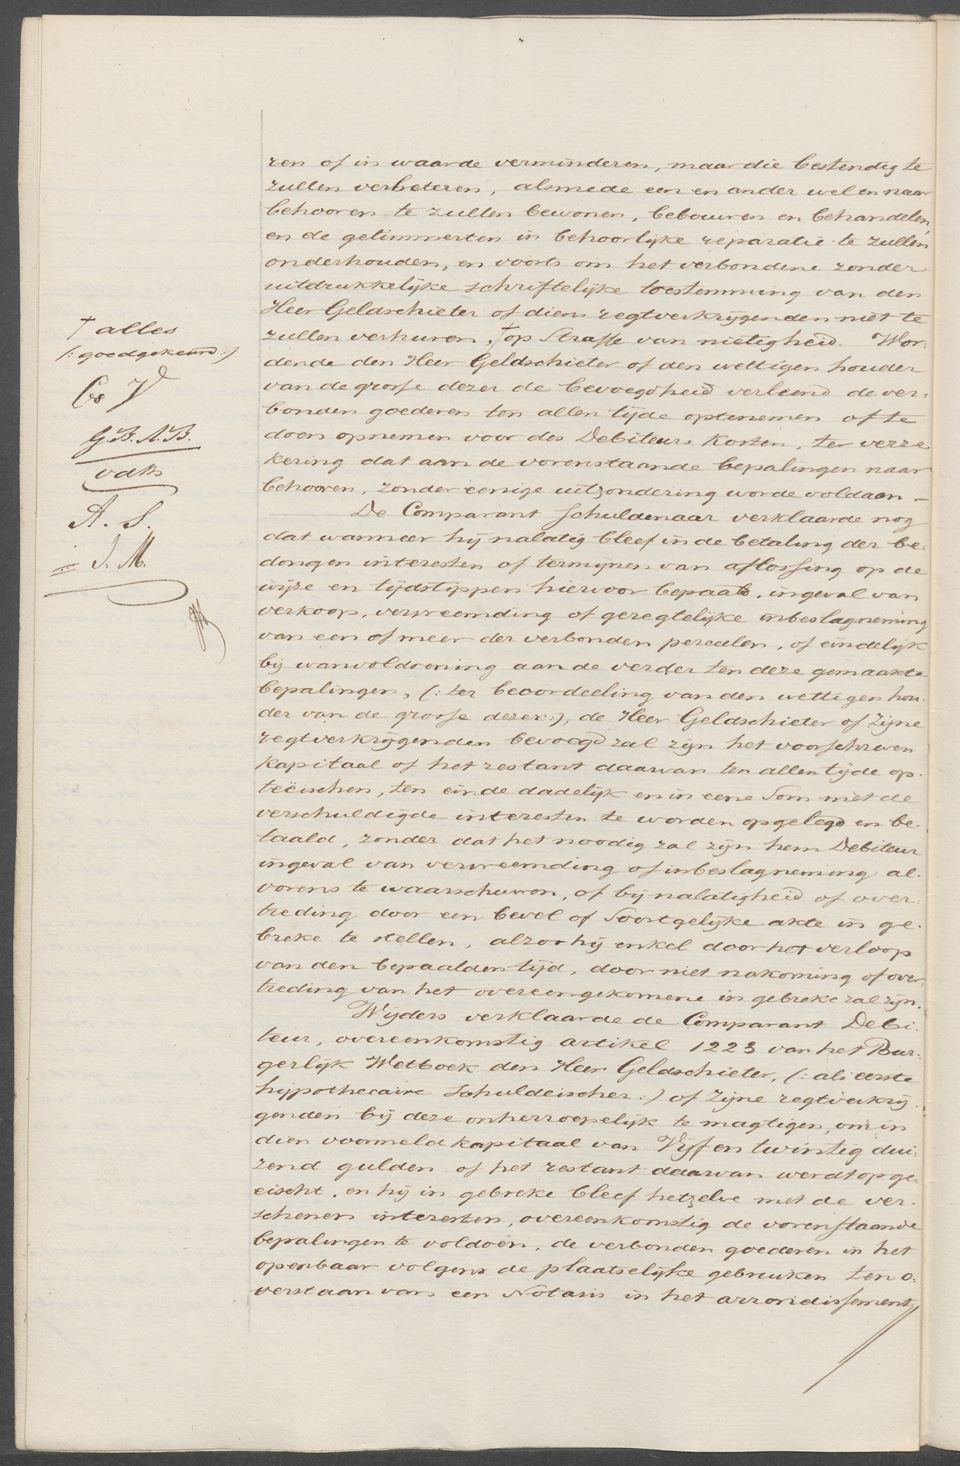 † alles
(: goedgekeurd :)
Cs V
G. B. A. B.
vdth
A. S.
J. M.
ren of in waarde verminderen, maar die bestendig te
zullen verbeteren, alsmede een en ander wel en naar
behooren te zullen bewonen, bebouwen en behandelen,
en de getimmerten in behoorlijke reparatie te zullen
onderhouden, en voorts om het verbondene zonder
uitdrukkelijke schriftelijke toestemming van den
Heer Geldschieter of diens regtverkrijgenden niet te
zullen verhuren, † op Straffe van nietigheid. Wor-
dende den Heer Geldschieter of den wettigen houder
van de grosse dezer de bevoegdheid verleend de ver-
bonden goederen ten allen tijde optenemen of te
doen opnemen voor des Debiteurs kosten, ter verze
kering dat aan de vorenstaande bepalingen naar
behooren, zonder eenige uitzondering worde voldaan –
De Comparant Schuldenaar verklaarde nog
dat wanneer hij nalatig bleef in de betaling der be-
dongen interesten of termijnen van aflossing op de
wijze en tijdstippen hiervoor bepaald, ingeval van
verkoop, vervreemding of geregtelijke inbeslagneming
van een of meer der verbonden perceelen, of eindelijk
bij wanvoldoening aan de verder ten deze gemaakte
bepalingen, (: ter beoordeeling van den wettigen hou-
der van de grosse dezer :), de Heer Geldschieter of zijne
regtverkrijgenden bevoegd zal zijn het voorschreven
kapitaal of het restant daarvan ten allen tijde op-
teëischen, ten einde dadelijk en in eene Som met de
verschuldigde interesten te worden opgelegd en be-
taald, zonder dat het noodig zal zijn hem Debiteur
ingeval van vervreemding of inbeslagneming al-
vorens te waarschuwen, of bij nalatigheid of over-
treding door een bevel of Soortgelijke akte in ge-
breke te stellen, alzoo hij enkel door het verloop
van den bepaalden tijd, door niet nakoming of over-
treding van het overeengekomene in gebreke zal zijn.
Wijders verklaarde de Comparant Debi-
teur, overeenkomstig artikel 1223 van het Bur-
gerlijk Wetboek den Heer Geldschieter, (: als eerste
hypothecaire Schuldeischer :) of Zijne regtverkrij-
genden bij deze onherroepelijk te magtigen, om in
dien voormeld kapitaal van Vijf en twintig dui-
zend gulden of het restant daarvan werdt opge-
eischt, en hij in gebreke bleef hetzelve met de ver-
schenen interesten, overeenkomstig de vorenstaande
bepalingen te voldoen, de verbonden goederen in het
openbaar volgens de plaatselijke gebruiken ten o-
verstaan van een Notaris in het arrondissement